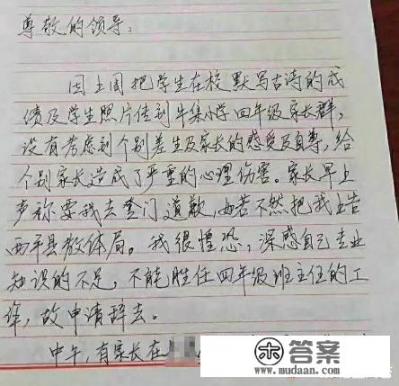 尊敬的领导:
因上周把学生在校默写古诗的成
绩及学生照片传到牛集小学四年级家长群,
没有考虑到个别差生及家长的感受及自尊,给
个别家长造成了严重的心理伤害。家长早上
声称要我去登门道歉,如若不然把我上告
西平县教体局。我很惶恐,深感自己专业
知识的不足,不能胜任四年级班主任的工
作,故申请辞去。
中午,有家长在
答案
www.mudaan.com